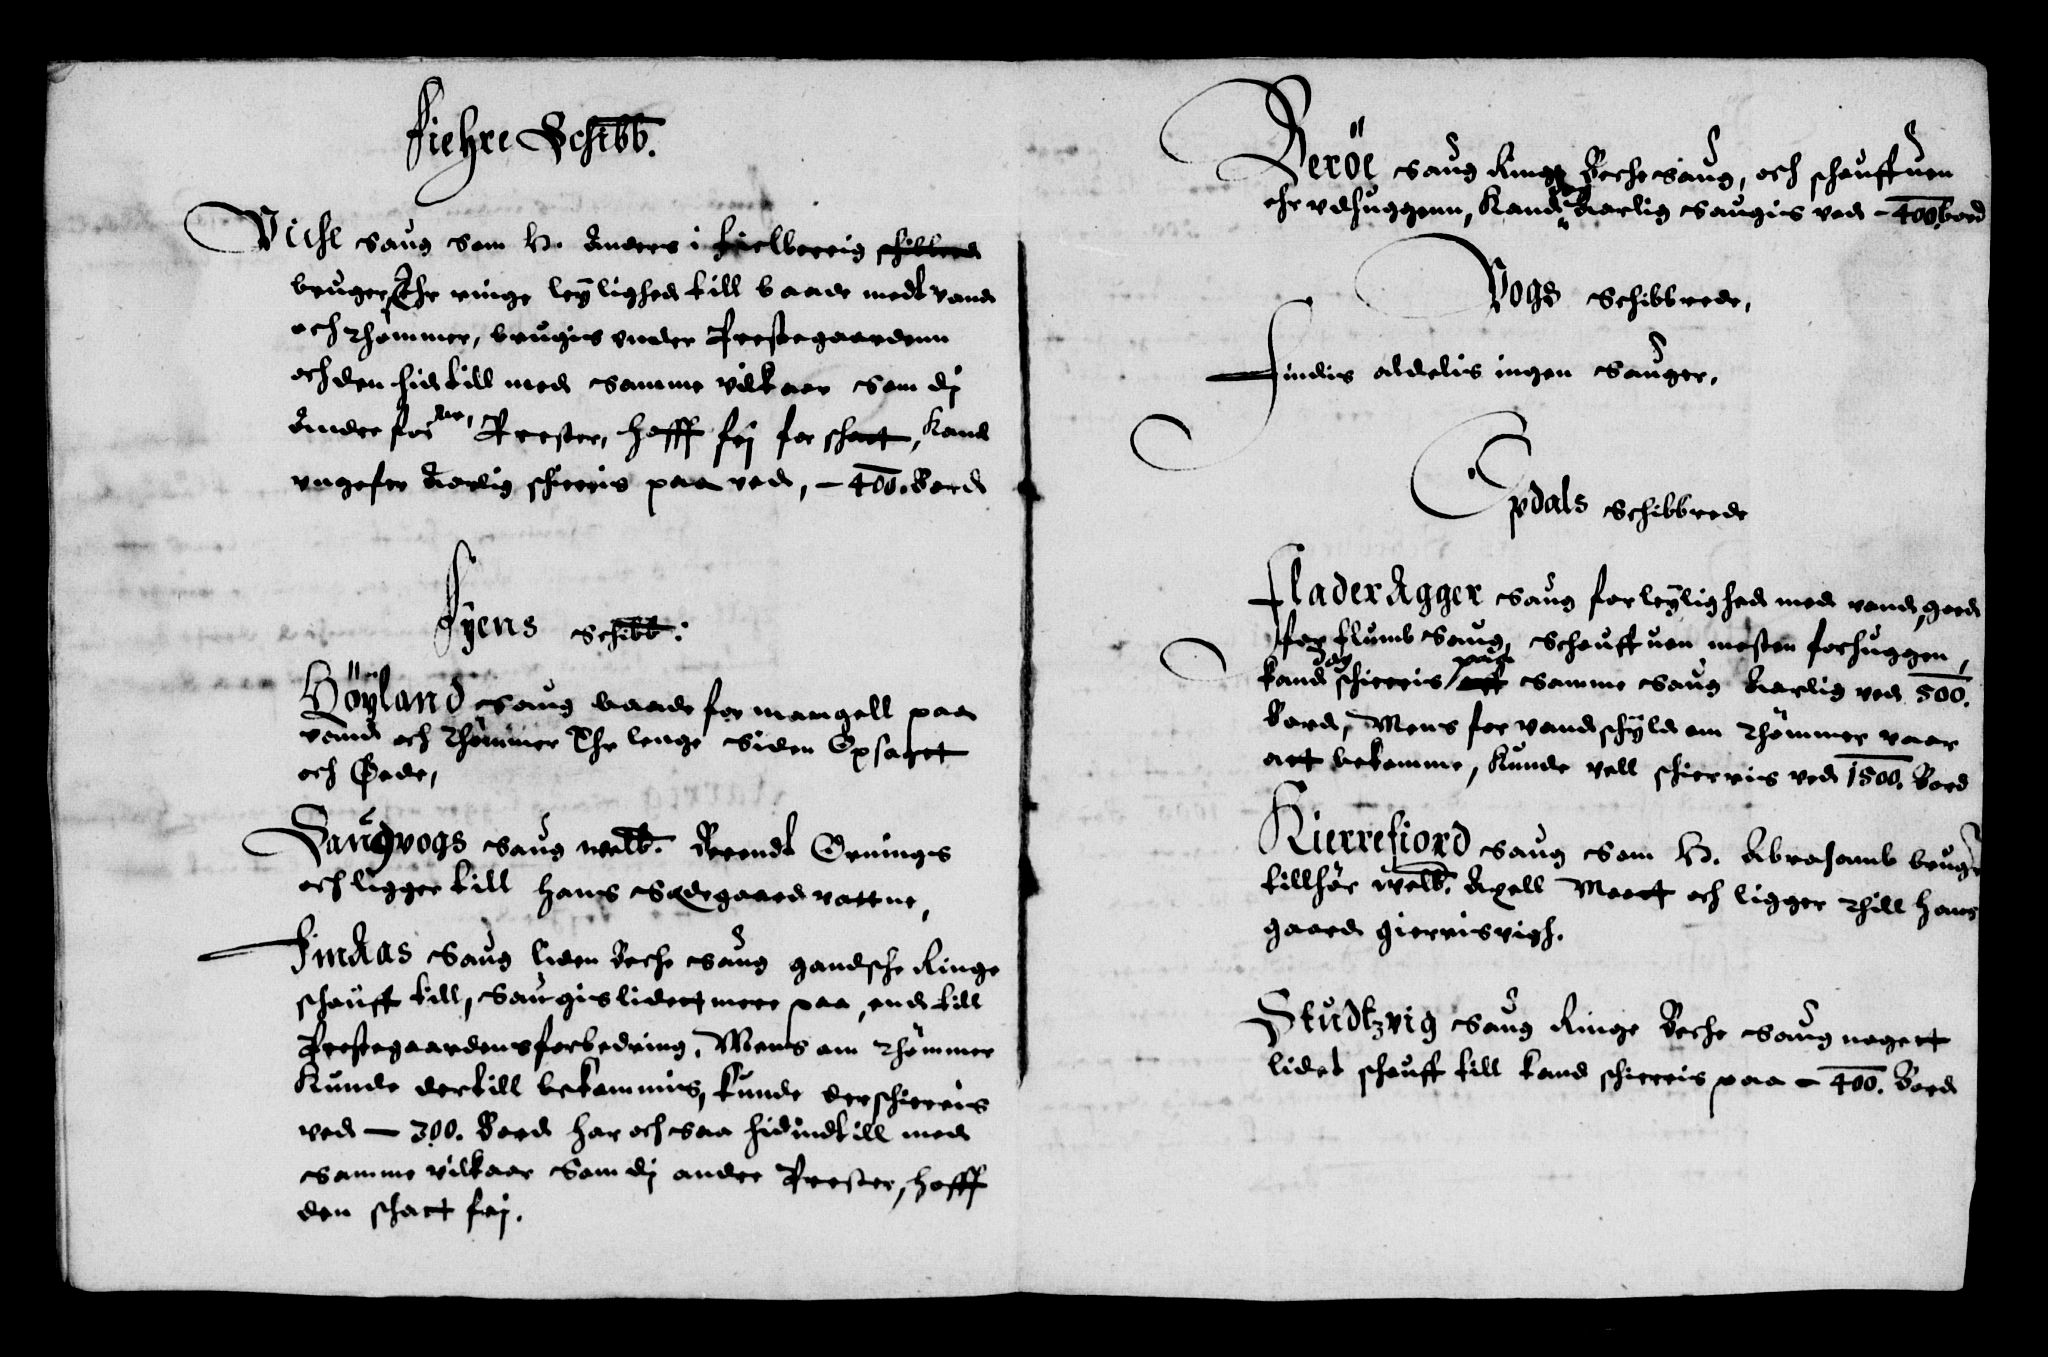 Fiehre Schibb.
Viche Saug som H. Anders i Fielbereig schibbred
bruger, Ehr ringe leÿlighed till baade medt vand
och Thømmer, brugis vnder Prestegaardenn
och den hid till med samme vilkaar som dj
Andre for Prester, hafft frj for schatt, Kand
vngefer Aarlig schieris paa ved, – 400. Bord
Fÿens Schibb:
Höÿland Saug baade for mangell paa
vand och Thømmer Ehr lenge siden Opsatt
och Øede,
Saugvogs Saug welb. Berendt Ornings
och ligger till hans Sædegaard vattne,
Fim Aas Saug liden Beche Saug gandsche Ringe
schauff till, Saugis lidet mere paa, end till
Prestegaardens forbedring. Mens om Thømmer
Kunde dertill bekommis, kunde der schieris
ved – 300. Bord har och saa hid indtill med
samme vilkaar som dj andre Prester, hafft
den schatt frj.
Beröe Saug Ringe Beche Saug, och schauffuen
ehr vdhuggenn, Kand Aarlig Saugis ved – 400. bord
Vogs Schibbrede,
Findis aldelis ingen Sauger,
Opdals Schibbrede
Flader Agger Saug for leÿlighed med vand, goed
for flumb Saug, Schauffuen mesten forhuggen,
kand dog schieris paa samme Saug Aarlig ved 500.
Bord, Mens for vandschÿld om Thømmer vaar
att bekomme, Kunde vell schierris ved 1500. Bord
Kierrefiord Saug som H. Abrahamb bruger
tillhør welb. Axell Matt och ligger Thill hans
gaard gierrisvigh.
Studtzvig Saug Ringe Beche Saug nogett
lidet schauff till kand schieris paa – 400. Bord